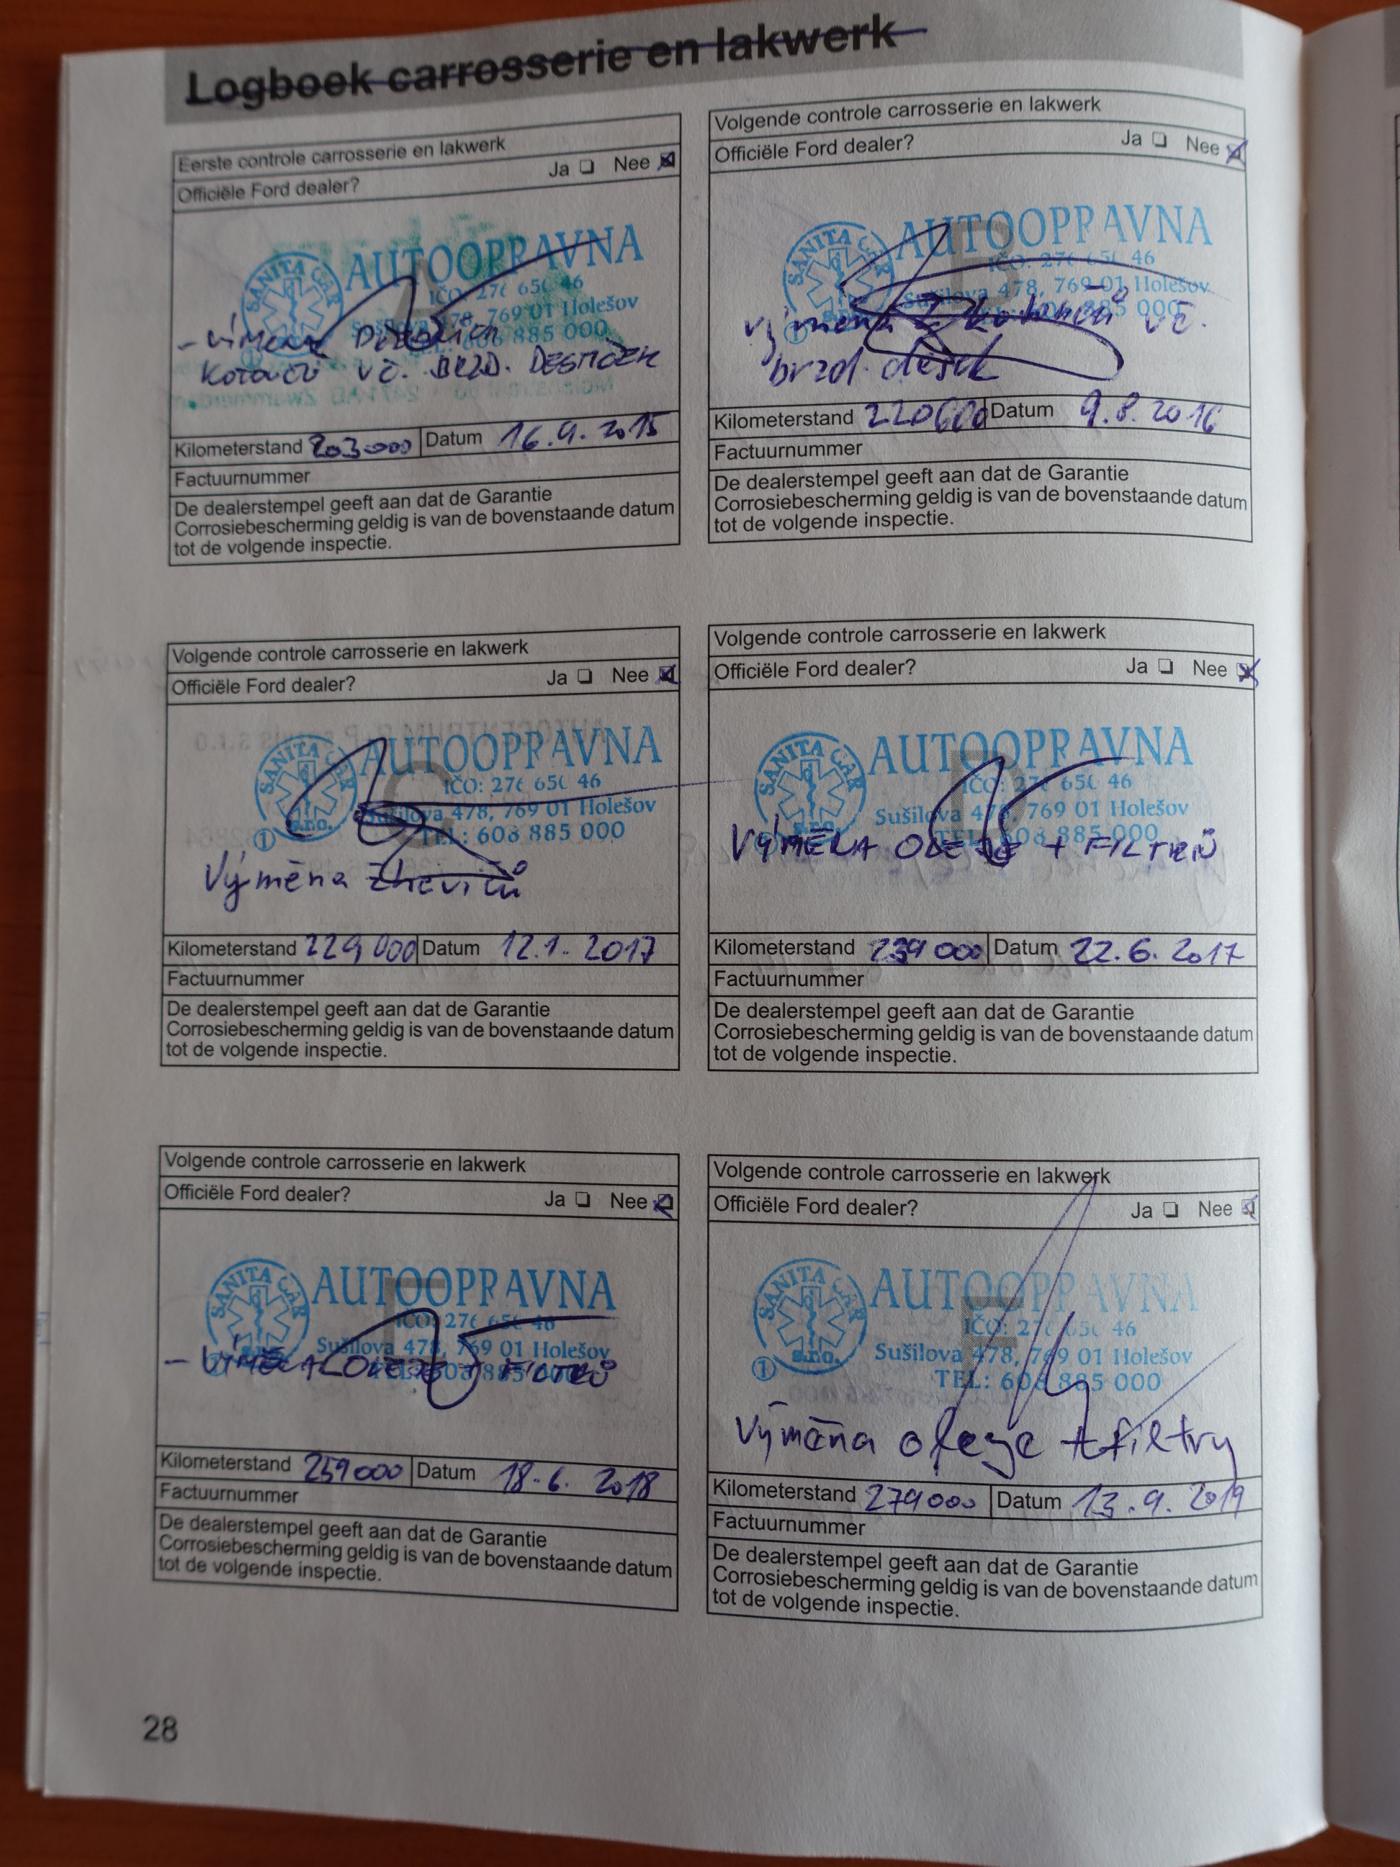 Logboek carrosserie en lakwerk
Eerste controle carrosserie en lakwerk
Officiële Ford dealer? Ja Nee
SANITA CAR
AUTOOPRAVNA
IČO: 276 650 46
Sušilova 478, 769 01 Holešov
TEL: 608 885 000
- VÝMĚNA
KOTOUČŮ VČ. BRZD. DESTIČEK
Kilometerstand 203000 Datum 16.9.2015
Factuurnummer
De dealerstempel geeft aan dat de Garantie
Corrosiebescherming geldig is van de bovenstaande datum
tot de volgende inspectie.
Volgende controle carrosserie en lakwerk
Officiële Ford dealer? Ja Nee
SANITA CAR
AUTOOPRAVNA
IČO: 276 650 46
Sušilova 478, 769 01 Holešov
885 000
výměna kotoučů vč.
brzd. desek
Kilometerstand 220600 Datum 9.8.2016
Factuurnummer
De dealerstempel geeft aan dat de Garantie
Corrosiebescherming geldig is van de bovenstaande datum
tot de volgende inspectie.
Volgende controle carrosserie en lakwerk
Officiële Ford dealer? Ja Nee
SANITA CAR s.r.o.
AUTOOPRAVNA
IČO: 276 650 46
Sušilova 478, 769 01 Holešov
1 TEL: 608 885 000
Výměna žhavičů
Kilometerstand 229000 Datum 12.1.2017
Factuurnummer
De dealerstempel geeft aan dat de Garantie
Corrosiebescherming geldig is van de bovenstaande datum
tot de volgende inspectie.
Volgende controle carrosserie en lakwerk
Officiële Ford dealer? Ja Nee
SANITA CAR
AUTOOPRAVNA
IČO: 276 650 46
Sušilova 478, 769 01 Holešov
608 885 000
VÝMĚNA OLEJE + FILTRŮ
Kilometerstand 239000 Datum 22.6.2017
Factuurnummer
De dealerstempel geeft aan dat de Garantie
Corrosiebescherming geldig is van de bovenstaande datum
tot de volgende inspectie.
Volgende controle carrosserie en lakwerk
Officiële Ford dealer? Ja Nee
SANITA CAR
AUTOOPRAVNA
IČO: 276 650 46
Sušilova 478, 769 01 Holešov
- VÝMĚNA OLEJE FILTRŮ
Kilometerstand 259000 Datum 18.6.2018
Factuurnummer
De dealerstempel geeft aan dat de Garantie
Corrosiebescherming geldig is van de bovenstaande datum
tot de volgende inspectie.
Volgende controle carrosserie en lakwerk
Officiële Ford dealer? Ja Nee
SANITA CAR s.r.o.
AUTOOPRAVNA
IČO: 276 650 46
Sušilova 478, 769 01 Holešov
1 TEL: 608 885 000
Výměna oleje + filtry
Kilometerstand 279000 Datum 13.9.2019
Factuurnummer
De dealerstempel geeft aan dat de Garantie
Corrosiebescherming geldig is van de bovenstaande datum
tot de volgende inspectie.
28